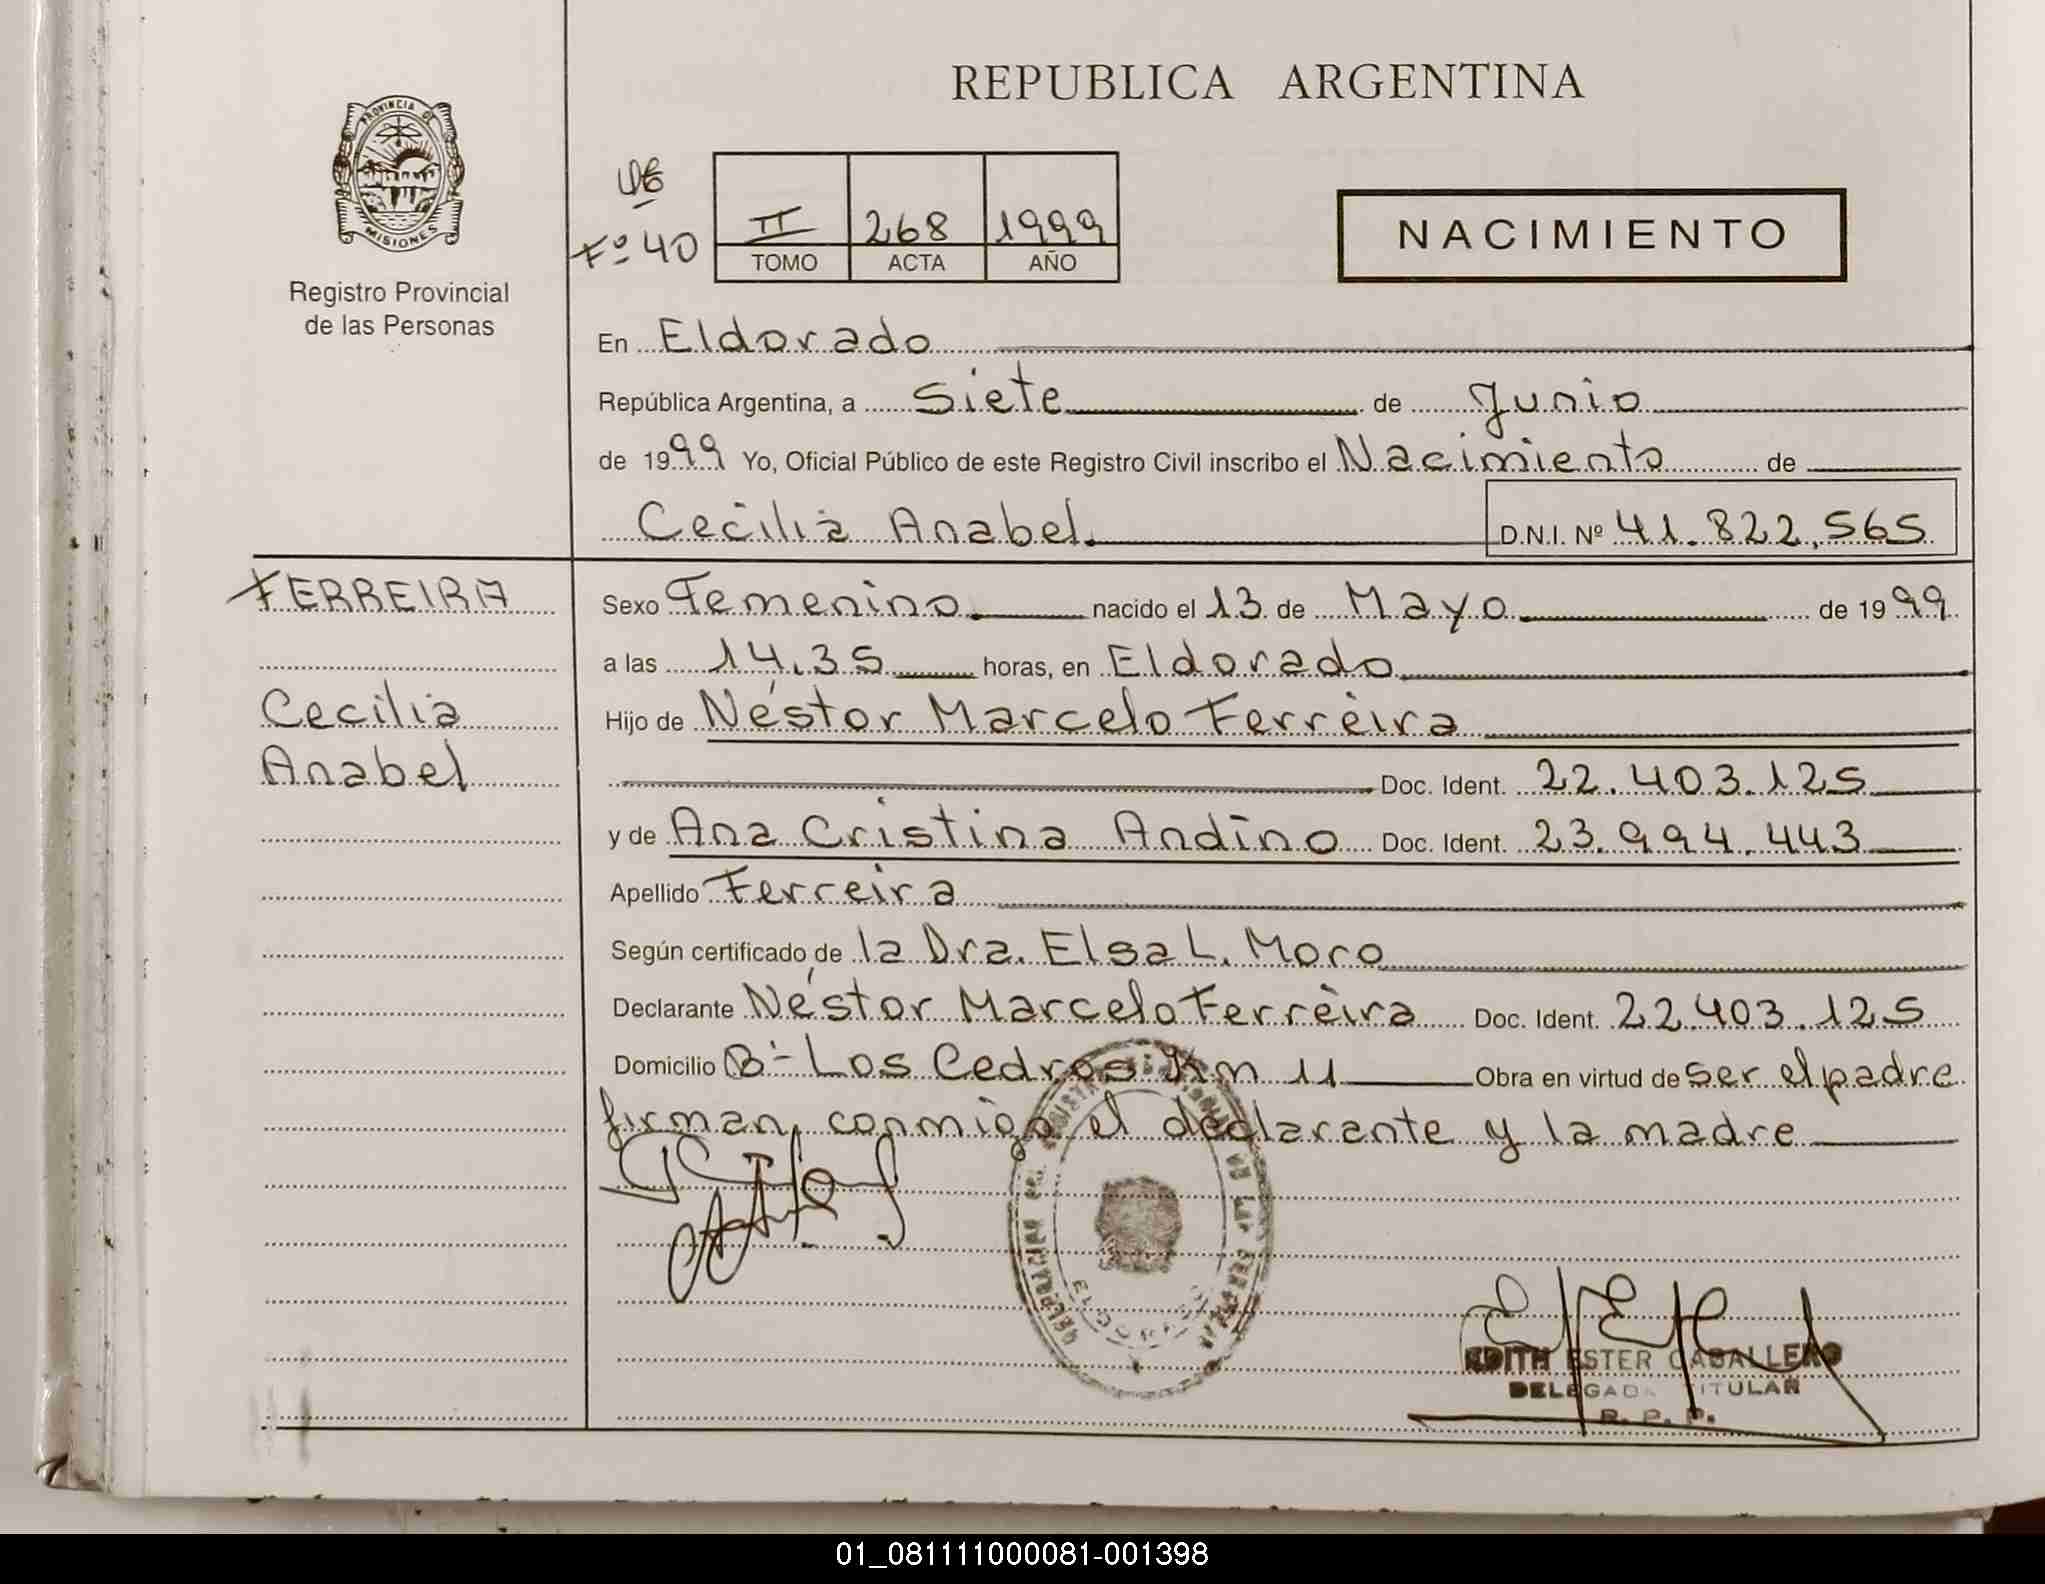 REPUBLICA ARGENTINA
PROVINCIA DE
MISIONES
Registro Provincial
de las Personas
Fº 40
II 268 1999
TOMO ACTA AÑO
NACIMIENTO
En Eldorado
República Argentina, a Siete de Junio
de 1999 Yo, Oficial Público de este Registro Civil inscribo el Nacimiento de
Cecilia Anabel D.N.I. Nº 41.822.565
FERREIRA
Cecilia
Anabel
Sexo Femenino nacido el 13 de Mayo de 1999
a las 14.35 horas, en Eldorado
Hijo de Néstor Marcelo Ferreira
Doc. Ident. 22.403.125
y de Ana Cristina Andino Doc. Ident. 23.994.443
Apellido Ferreira
Según certificado de la Dra. Elsa L. Moro
Declarante Néstor Marcelo Ferreira Doc. Ident. 22.403.125
Domicilio Bº Los Cedros Km 11 Obra en virtud de ser el padre
firman conmigo el declarante y la madre
ELDORADO
EDITH ESTER CABALLERO
DELEGADA TITULAR
R. P. P.
01_081111000081-001398